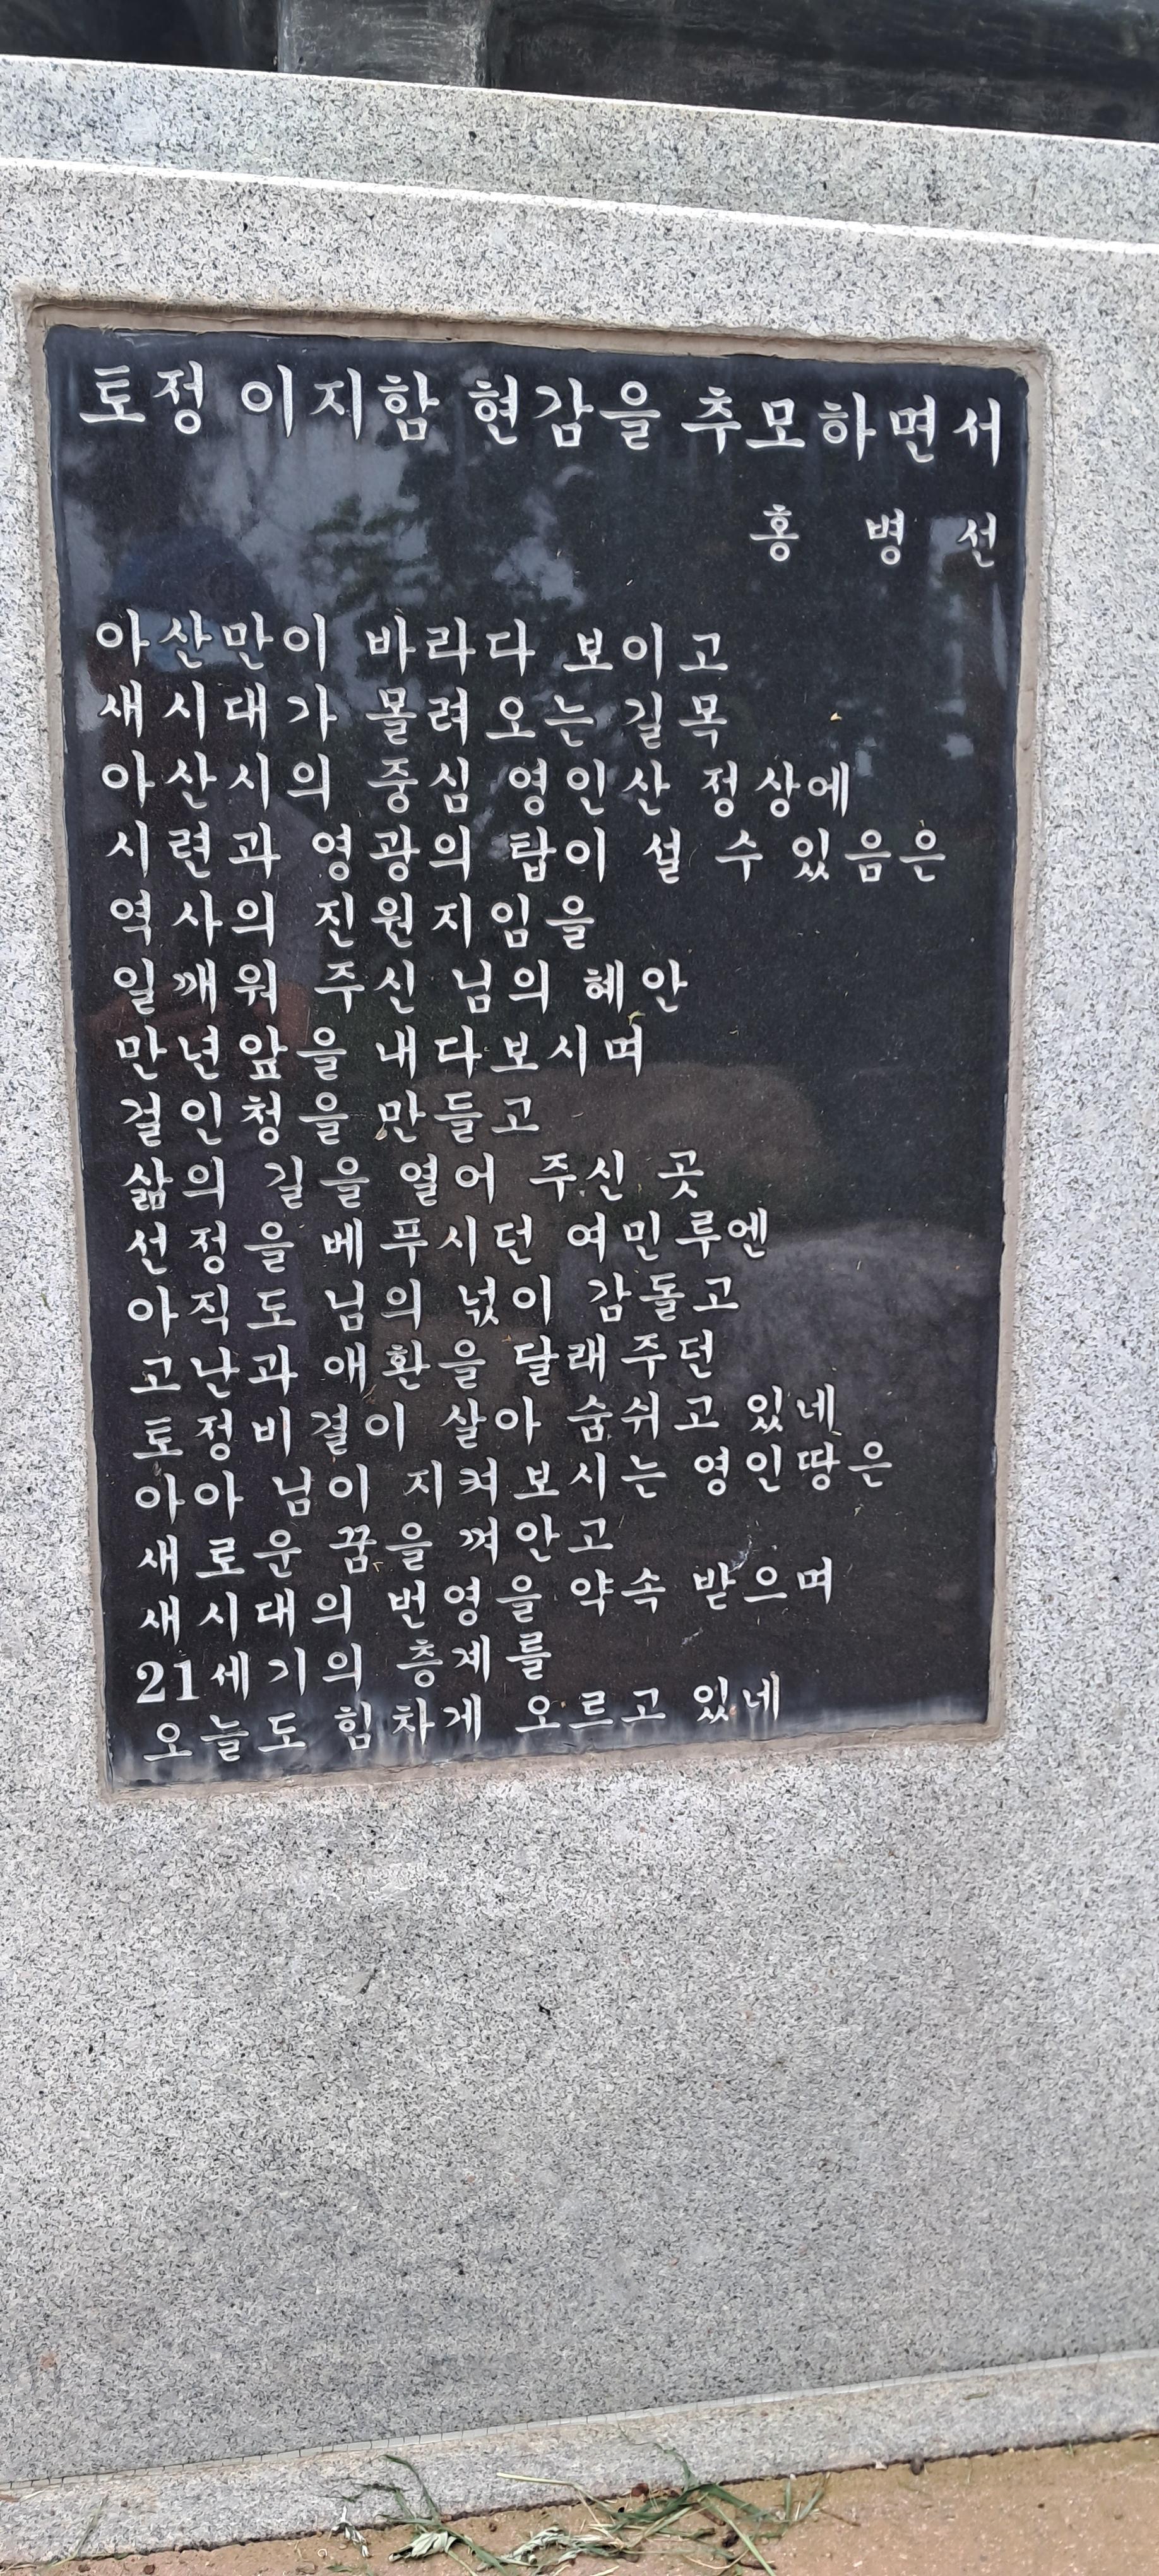 토정 이지함 현감을 추모하면서
홍 병 선
아산만이 바라다 보이고
새시대가 몰려오는 길목
아산시의 중심 영인산 정상에
시련과 영광의 탑이 설 수 있음은
역사의 진원지임을
일깨워 주신 님의 혜안
만년앞을 내다보시며
걸인청을 만들고
삶의 길을 열어 주신 곳
선정을 베푸시던 여민루엔
아직도 님의 넋이 감돌고
고난과 애환을 달래주던
토정비결이 살아 숨쉬고 있네
아아 님이 지켜보시는 영인땅은
새로운 꿈을 껴안고
새시대의 번영을 약속 받으며
21세기의 층계를
오늘도 힘차게 오르고 있네